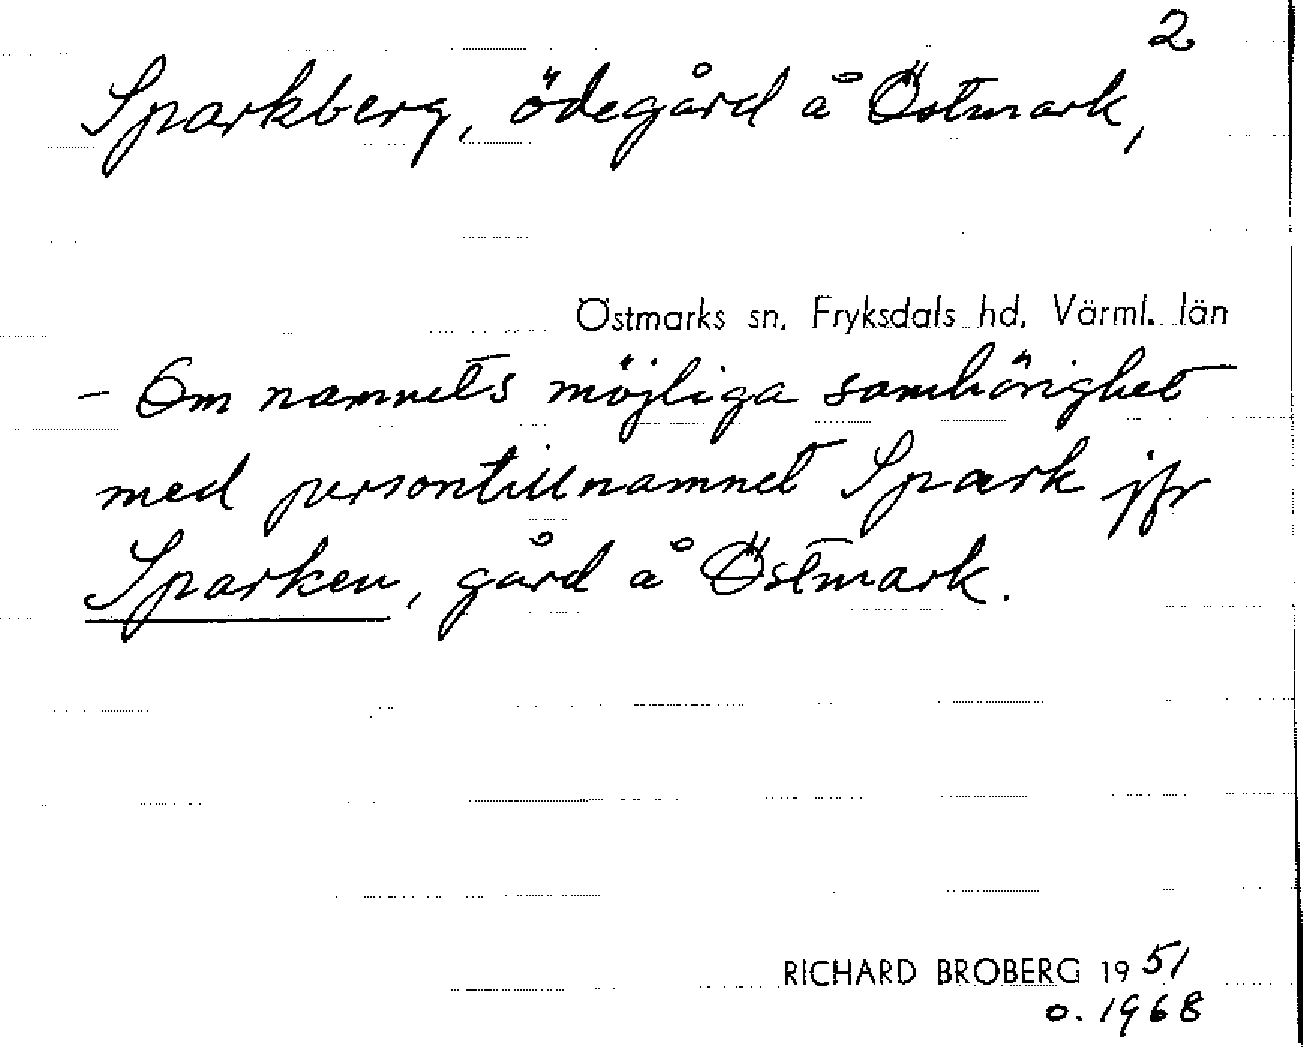 2
Sparkberg, ödegård å Östmark,
Östmarks sn, Fryksdals hd, Värml. län
- Om namnets möjliga samhörighet
med persontillnamnet Spark jfr
Sparken, gård å Östmark.
RICHARD BROBERG 1951
o. 1968